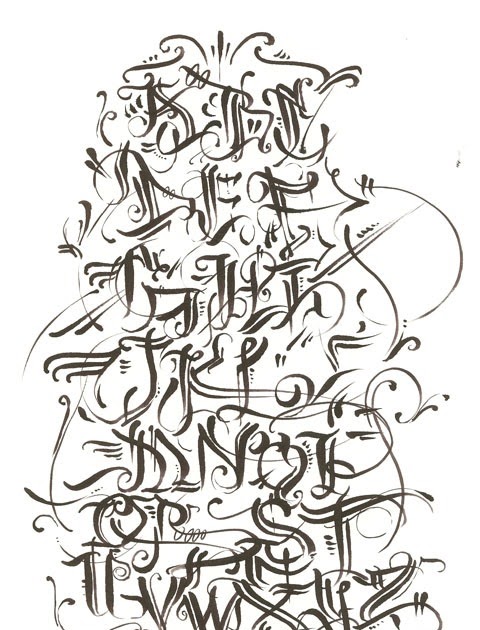 A B C
D E F
G H I
J K L
M N O P
Q R S T
U V W X Y Z